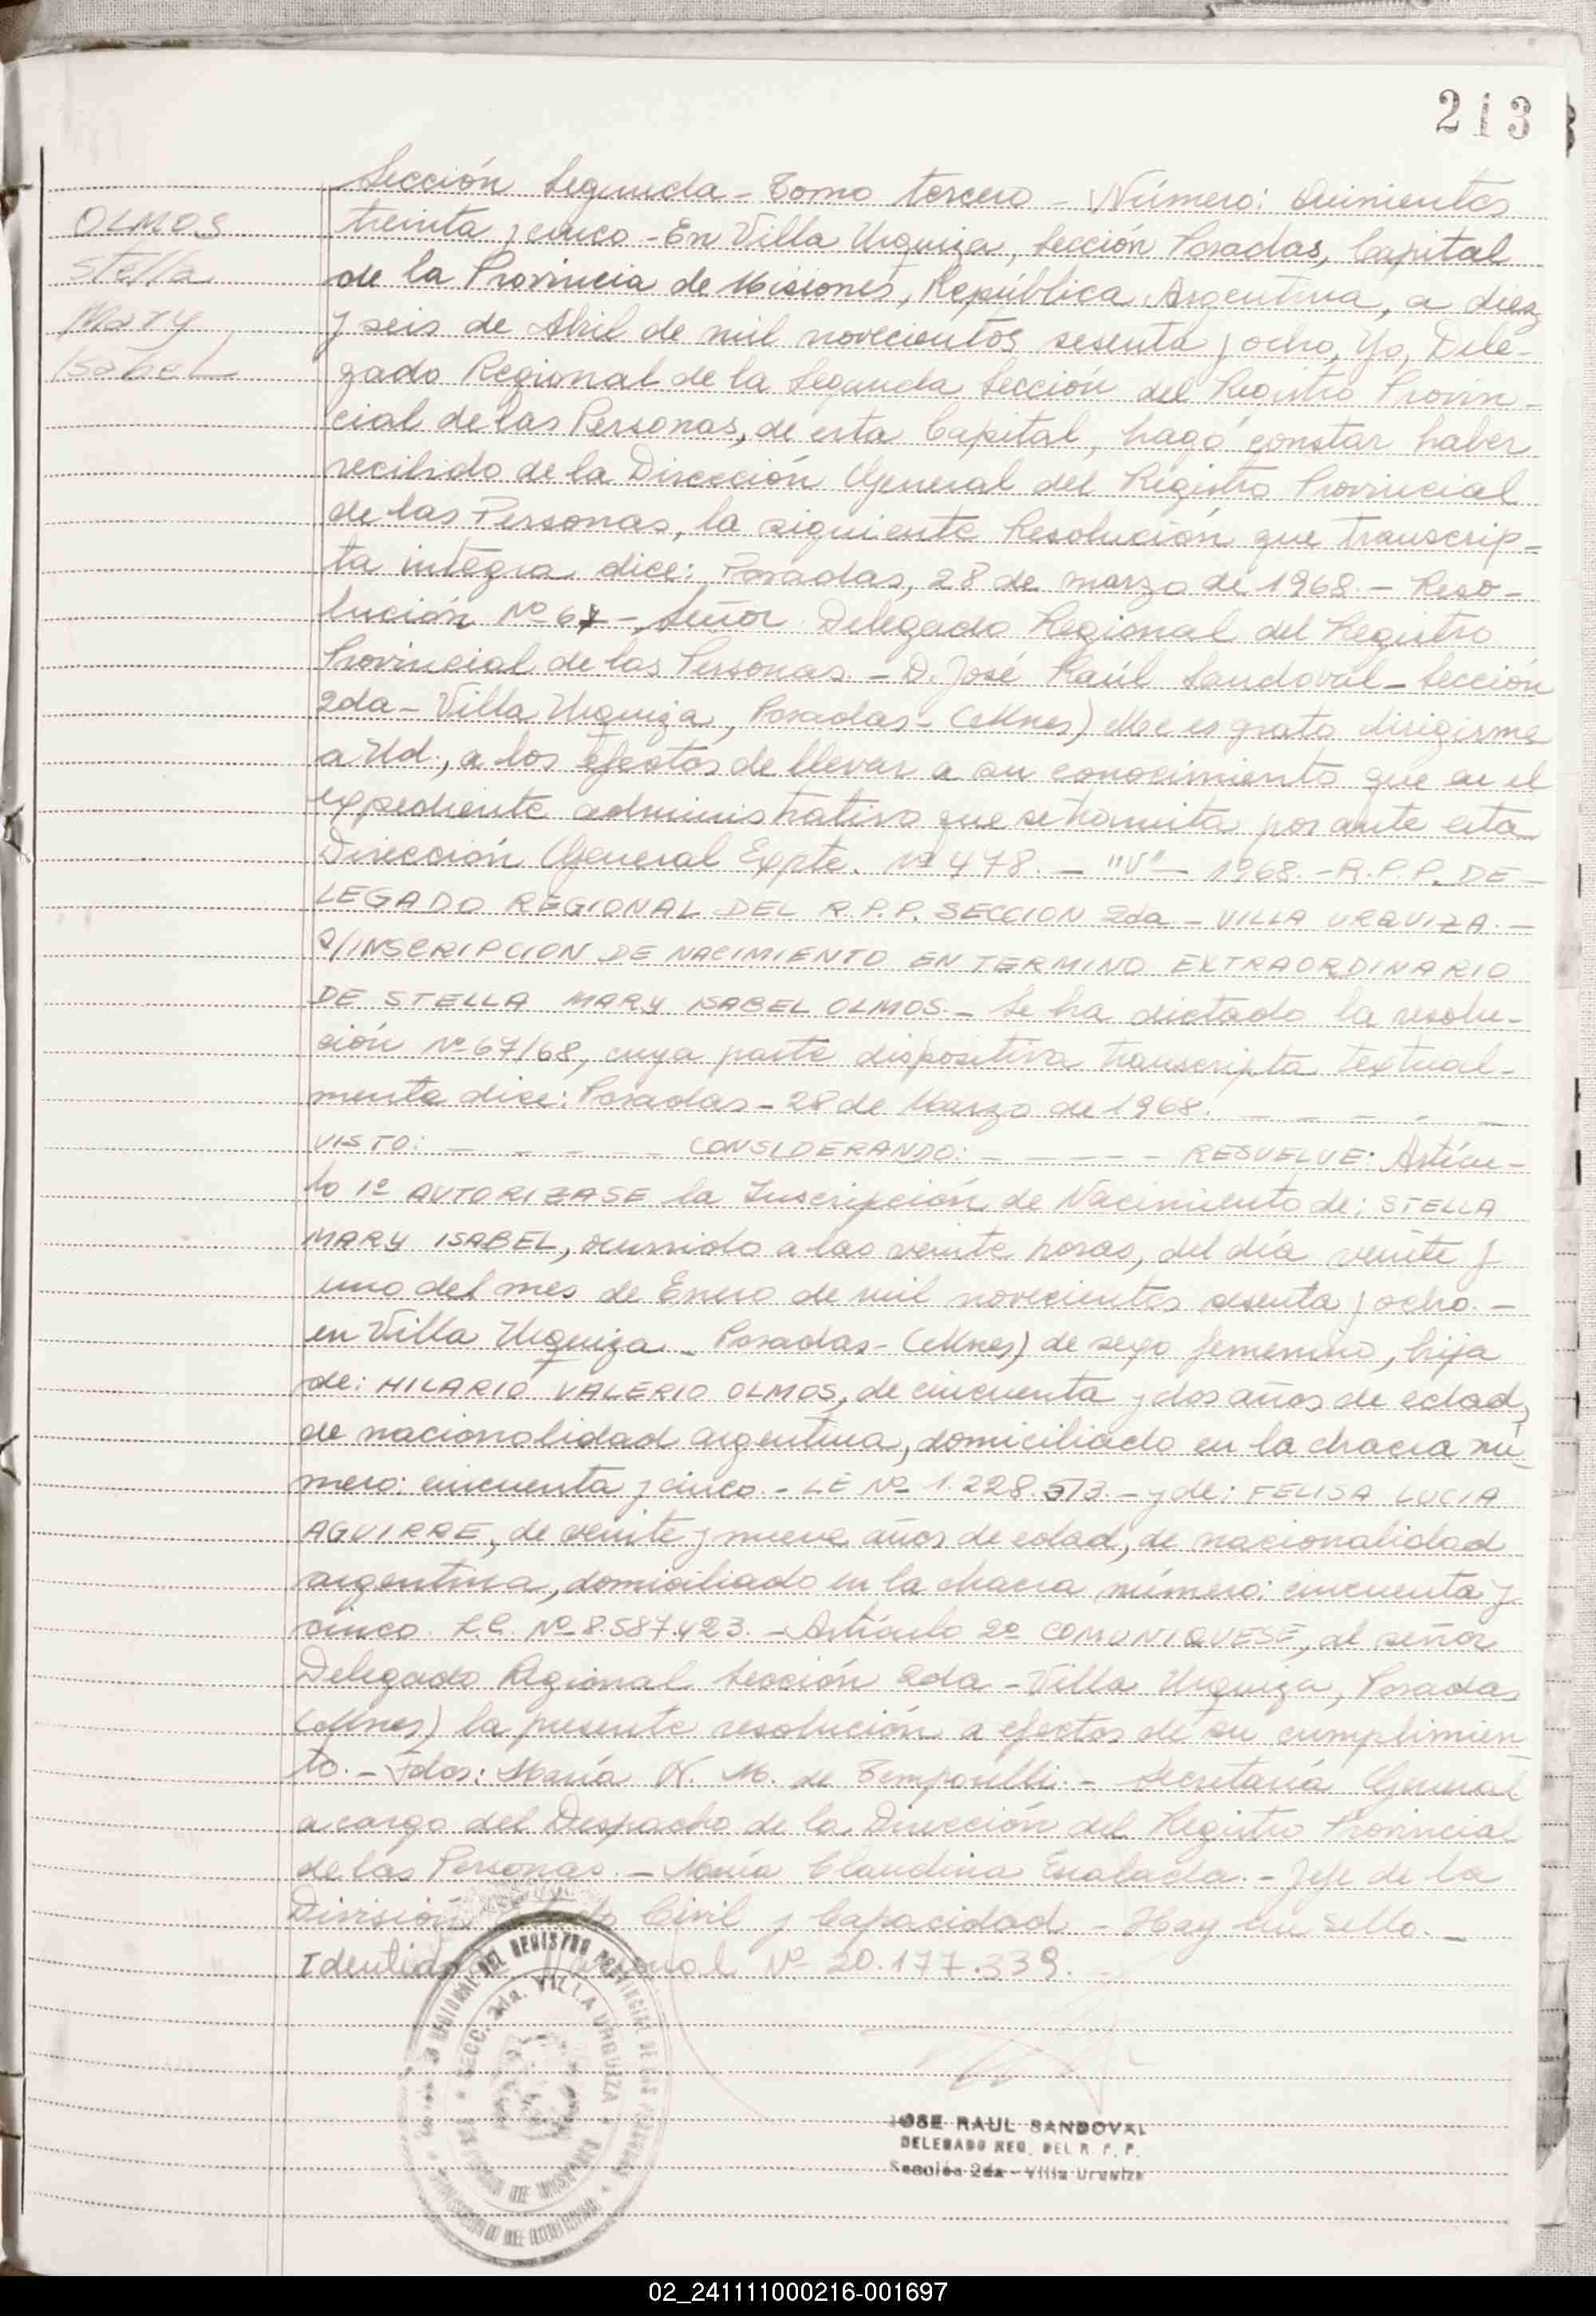 213
OLMOS
Stella
Mary
Isabel
Sección Segunda - Tomo tercero - Número: Quinientos
treinta y cinco - En Villa Urquiza, Sección Posadas, Capital
de la Provincia de Misiones, República Argentina, a diez
y seis de Abril de mil novecientos sesenta y ocho, Yo, Dele-
gado Regional de la Segunda Sección del Registro Provin-
cial de las Personas, de esta Capital, hago constar haber
recibido de la Dirección General del Registro Provincial
de las Personas, la siguiente Resolución que transcrip-
ta integra dice: Posadas, 28 de marzo de 1968. - Reso-
lución Nº 67 - Señor Delegado Regional del Registro
Provincial de las Personas - D. José Raúl Sandoval - Sección
2da - Villa Urquiza, Posadas - (Mnes) Me es grato dirigirme
a Ud., a los efectos de llevar a su conocimiento que en el
expediente administrativo que se tramita por ante esta
Dirección General Expte. Nº 478. - "V" - 1968. - R.P.P. DE-
LEGADO REGIONAL DEL R.P.P. SECCION 2da - VILLA URQUIZA. -
S/INSCRIPCION DE NACIMIENTO EN TERMINO EXTRAORDINARIO
DE STELLA MARY ISABEL OLMOS. - Se ha dictado la resolu-
ción Nº 67/68, cuya parte dispositiva transcripta textual-
mente dice: Posadas - 28 de Marzo de 1968. - - - - - -
VISTO: - - - - - CONSIDERANDO: - - - - - RESUELVE: Artícu-
lo 1º AUTORIZASE la Inscripción de Nacimiento de: STELLA
MARY ISABEL, ocurrido a las veinte horas, del día veinte y
uno del mes de Enero de mil novecientos sesenta y ocho. -
en Villa Urquiza - Posadas - (Mnes) de sexo femenino, hija
de: HILARIO VALERIO OLMOS, de cincuenta y dos años de edad,
de nacionalidad argentina, domiciliado en la chacra nú-
mero: cincuenta y cinco. - LE Nº 1.228.573. - y de: FELISA LUCIA
AGUIRRE, de veinte y nueve años de edad, de nacionalidad
argentina, domiciliado en la chacra número: cincuenta y
cinco. L.C. Nº 8.587.423. - Artículo 2º COMUNIQUESE, al señor
Delegado Regional Sección 2da - Villa Urquiza, Posadas
(Mnes) la presente resolución a efectos de su cumplimien
to. - Fdos: María N. M. de Temporelli. - Secretaria General
a cargo del Despacho de la Dirección del Registro Provincial
de las Personas. - María Claudina Escalada. - Jefe de la
División Civil y Capacidad - Hay un sello. -
Identidad Nº 20.177.339.
DEL REGISTRO PROVINCIAL DE LAS PERSONAS
SECC. 2da. VILLA URQUIZA
JOSE RAUL SANDOVAL
DELEGADO REG. DEL R. P. P.
Sección 2da - Villa Urquiza
02_241111000216-001697